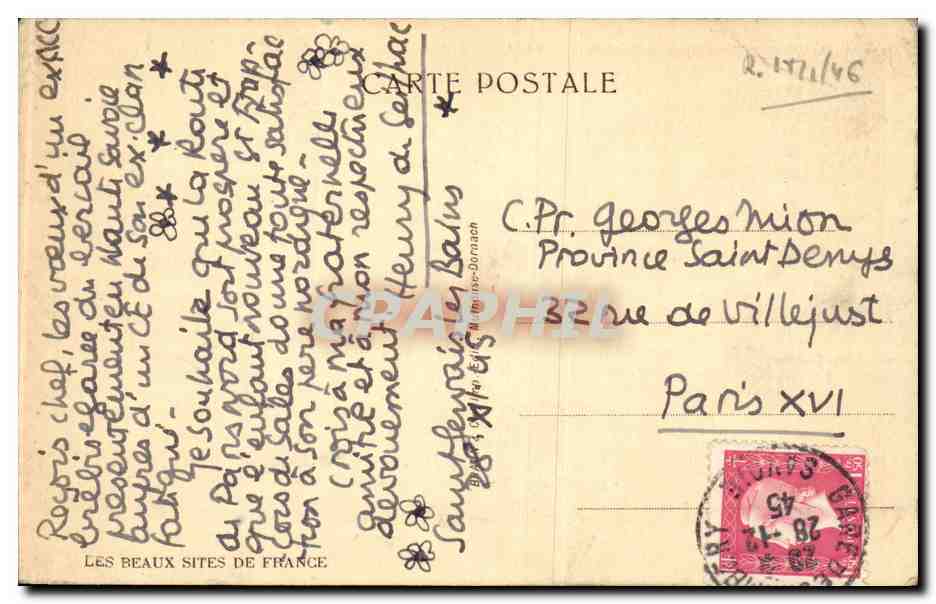 CARTE POSTALE
R. 1711/46
Reçois chef, les vœux d'un ex ACC
brebis égarée du bercail
présentement en Haute Savoie
auprès d'un CE de son ex-clan
fatigué-
Je souhaite que la Route
du Paris nord soit prospère et
que l'enfant nouveau St Fran-
çois de Sales donne toute satisfac
tion à son père nordique-
Crois à ma fraternelle
amitié et à mon respectueux
dévouement Henry de Seilhac
Saint Gervais les Bains
28 XII 45
Mulhouse-Dornach
C.Pr. Georges Mion
Province Saint Denys
32 rue de Villejust
Paris XVI
CPAPHIL
GARE DE CHAMBERY SAVOIE
28 -12
45
LES BEAUX SITES DE FRANCE